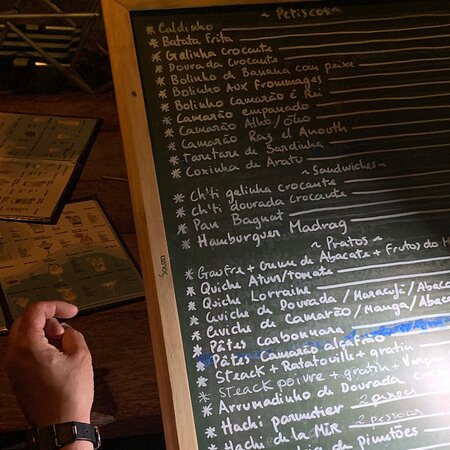 ~ Petiscos
* Caldinho
* Batata frita
* Galinha crocante
* Dourada crocante
* Bolinho de Banana com peixe
* Bolinho Aux Frommages
* Bolinho Camarão é Rei
* Camarão empanado
* Camarão Alho/Óleo
* Camarão Ras el Anouth
* Tartare de Sardinha
* Coxinha de Aratu
~ Sandwiches ~
* Ch'ti galinha crocante
* Ch'ti dourada crocante
* Pan Bagnat
* Hamburguer Madrag
~ Pratos ~
* Gaufre + creme de Abacate + Frutos do M
* Quiche Atun/tomate
* Quiche Lorraine
* Ceviche de Dourada / Maracujá / Abaca
* Ceviche de Camarão / Manga / Abaca
* Pâtes carbonnara
* Pâtes Camarão alçafrão
* Steack + Ratatouille + gratin
* Steack poivre + gratin +
* Arrumadinho de Dourada
* Hachi parmentier 2 pessoas
* Hachi de la Mer 2 pessoas
de pimentões
Souza